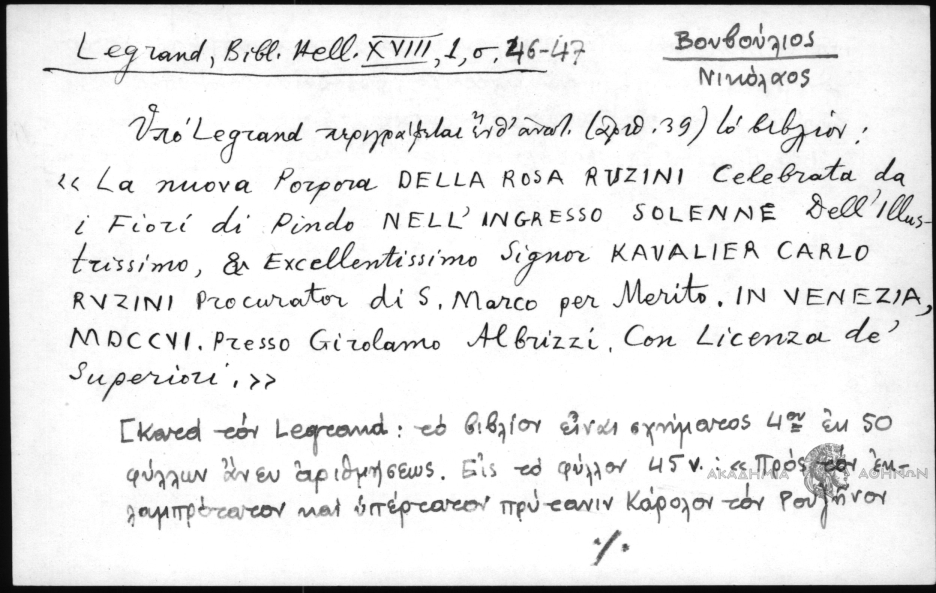 Legrand, Bibl. Hell. XVIII, 1, σ. 46-47
Βουβούλιος
Νικόλαος
Ὑπό Legrand περιγράφεται ἐνθ' ἀνωτ. (ἀριθ. 39) τό βιβλίον:
«La nuova Porpora DELLA ROSA RUZINI Celebrata da
i Fiori di Pindo NELL'INGRESSO SOLENNE Dell'Illus-
trissimo, & Excellentissimo Signor KAVALIER CARLO
RVZINI Procurator di S. Marco per Merito. IN VENEZIA,
MDCCVI. Presso Girolamo Albrizzi. Con Licenza de'
Superiori.»
[Κατά τόν Legrand: τό βιβλίον εἶναι σχήματος 4ου ἐκ 50
φύλλων ἄνευ ἀριθμήσεως. Εἰς τό φύλλον 45 v.: «Πρός τόν ἐκ-
λαμπρότατον καί ὑπέρτατον πρύτανιν Κάρολον τόν Ρουζῆνον
./.
ΑΚΑΔΗΜΙΑ ΑΘΗΝΩΝ